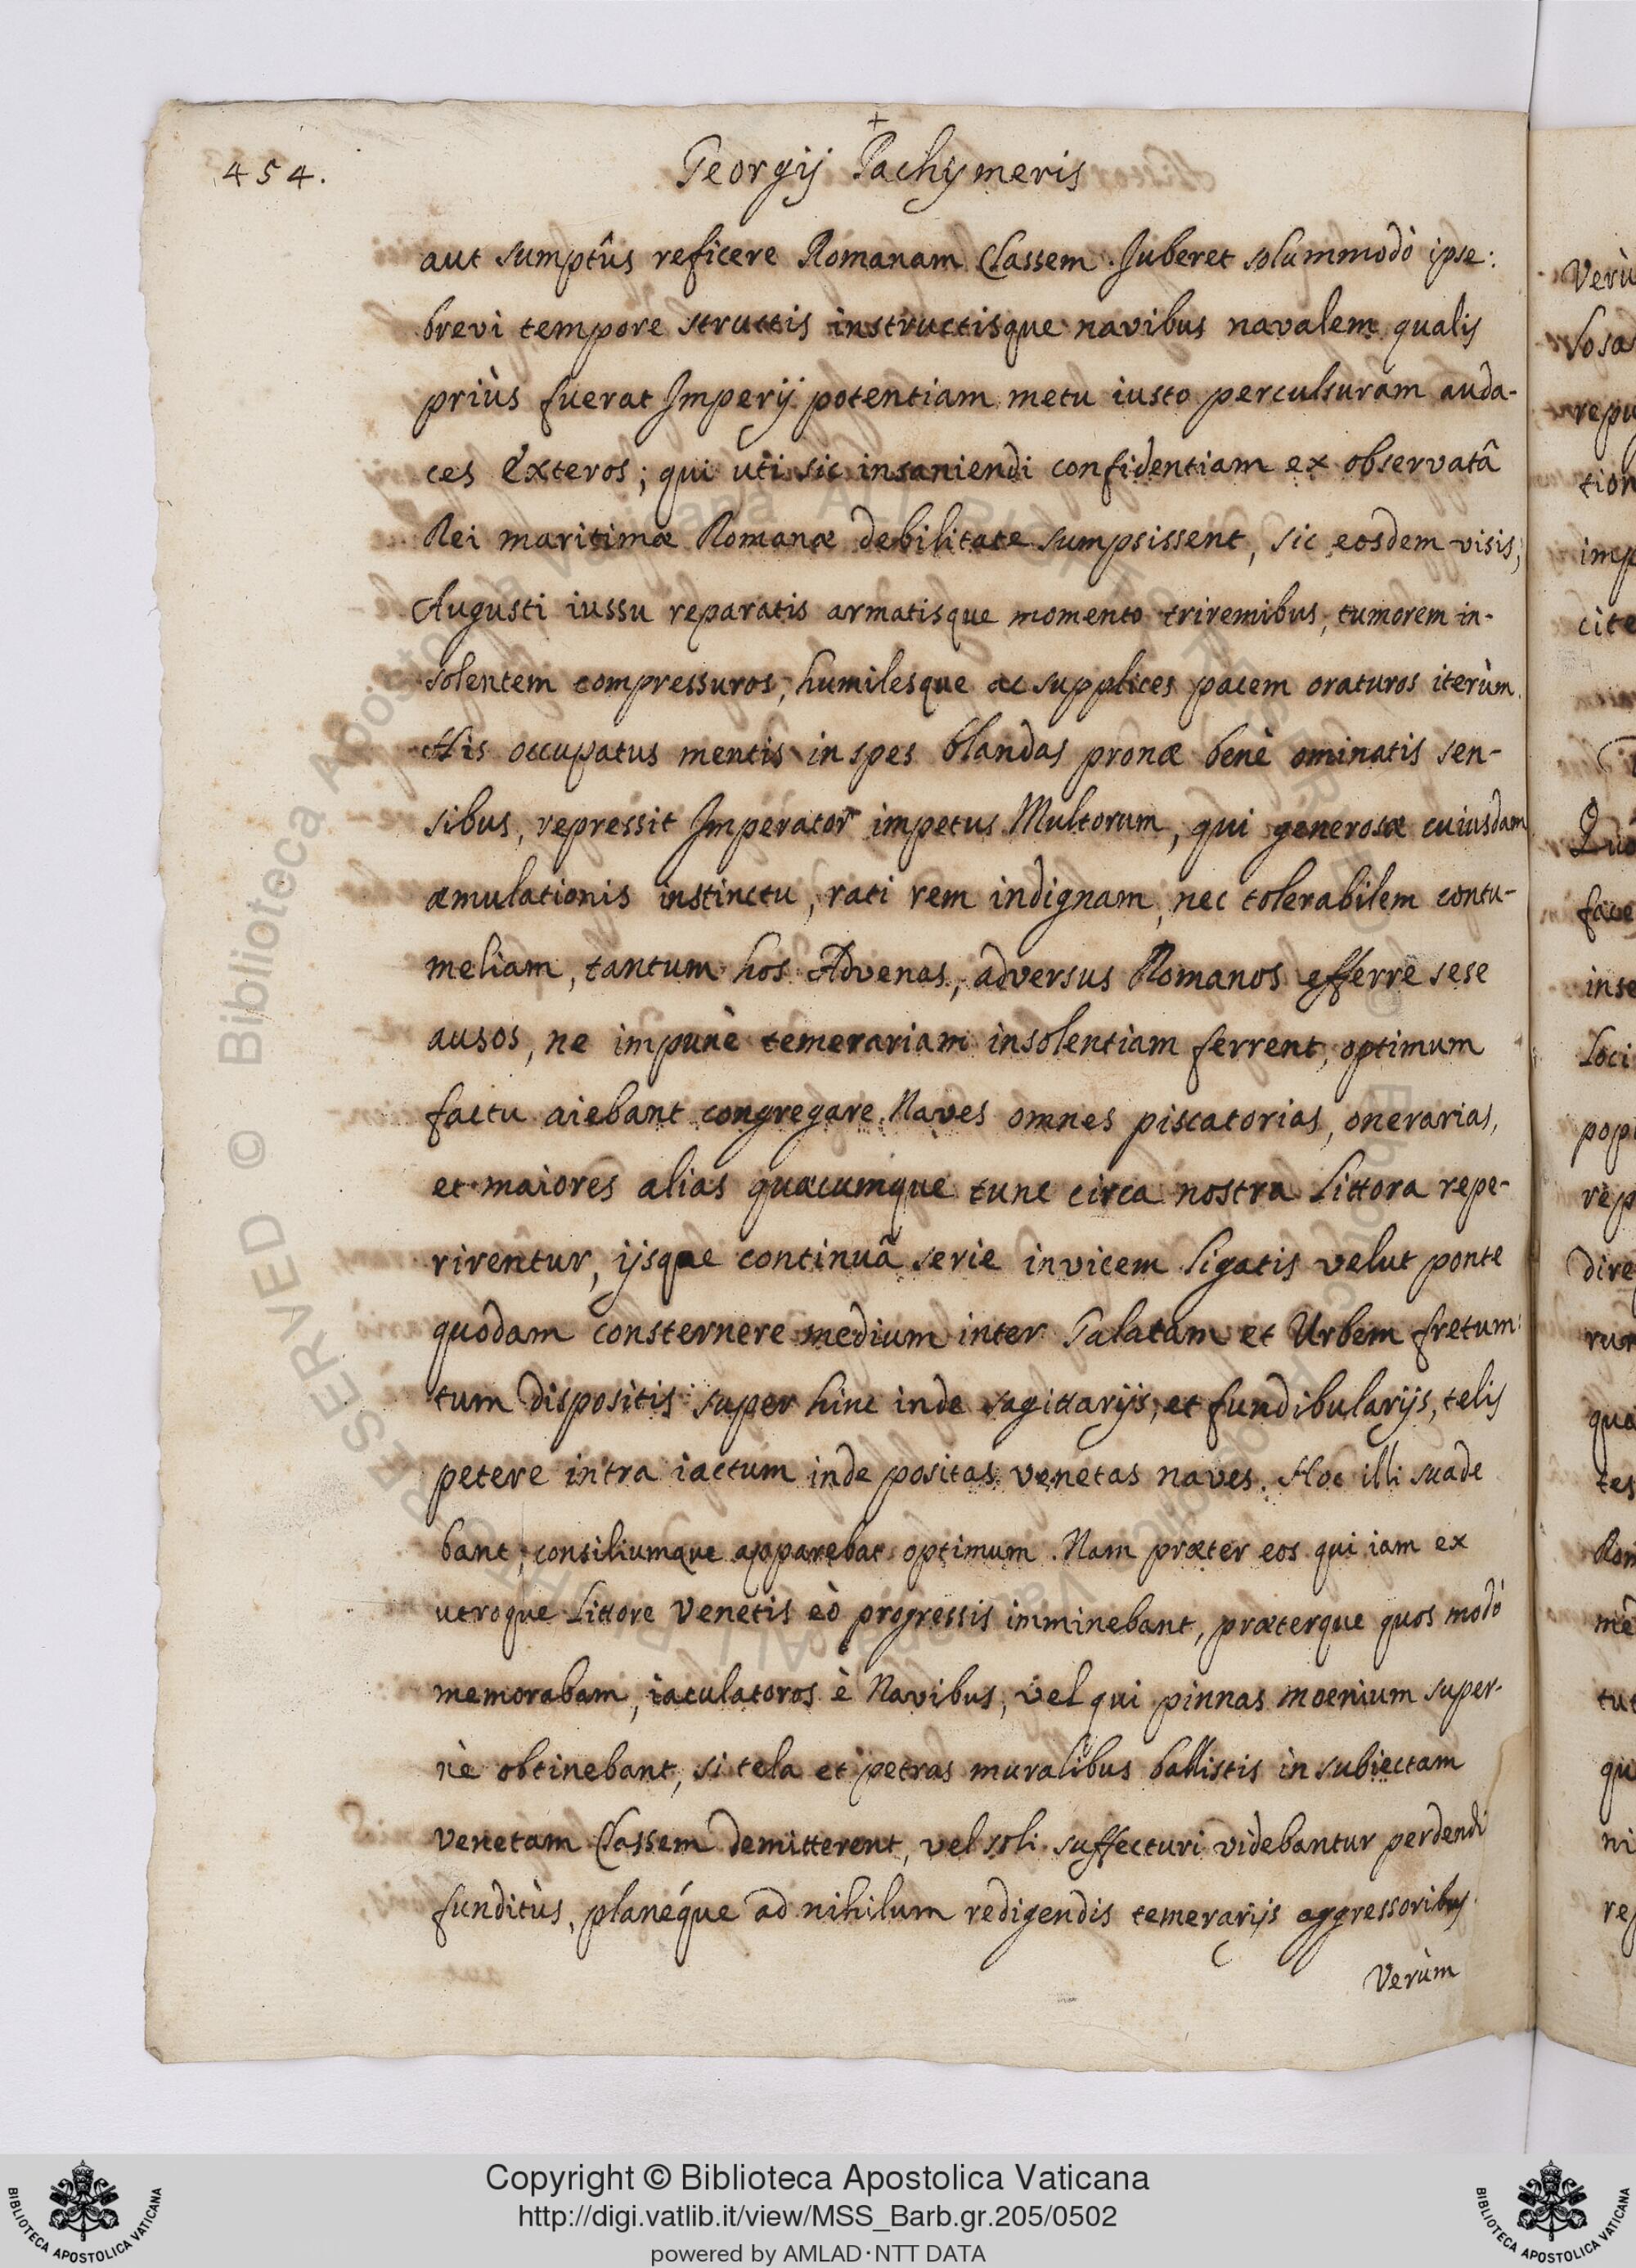 454.
Georgij Pachymeris
aut sumptûs reficere Romanam Classem. Juberet solummodò ipse:
brevi tempore structis instructisque navibus navalem qualis
priùs fuerat Imperij potentiam metu iusto perculsuram auda-
ces Exteros; qui uti sic insaniendi confidentiam ex observatâ
Rei maritimæ Romanæ debilitate sumpsissent, sic eosdem visis,
Augusti iussu reparatis armatisque momento triremibus, tumorem in-
solentem compressuros, humilesque ac supplices pacem oraturos iterùm.
His occupatus mentis in spes blandas pronæ benè ominatis sen-
sibus, repressit Imperator impetus Multorum, qui generosæ cuiusdam
æmulationis instinctu, rati rem indignam, nec tolerabilem contu-
meliam, tantum hos Advenas, adversus Romanos efferre sese
ausos, ne impunè temerariam insolentiam ferrent, optimum
factu aiebant congregare Naves omnes piscatorias, onerarias,
et maiores alias quæcumque tunc circa nostra Littora repe-
rirentur, ijsque continuâ serie invicem ligatis velut ponte
quodam consternere medium inter Galatam et Urbem fretum:
tum dispositis super hinc inde sagittarijs, et fundibularijs, telis
petere intra iactum inde positas venetas naves. Hoc illi suade
bant, consiliumque apparebat optimum. Nam præter eos qui iam ex
utroque Littore Venetis eò progressis imminebant, præterque quos modò
memorabam, iaculatoros è Navibus, vel qui pinnas moenium super-
nè obtinebant, si tela et petras muralibus ballistis in subiectam
venetam Classem demitterent, vel soli suffecturi videbantur perdendi
funditùs, planéque ad nihilum redigendis temerarijs aggressoribus.
Verùm
Copyright © Biblioteca Apostolica Vaticana
http://digi.vatlib.it/view/MSS_Barb.gr.205/0502
powered by AMLAD·NTT DATA
BIBLIOTECA APOSTOLICA VATICANA
BIBLIOTECA APOSTOLICA VATICANA